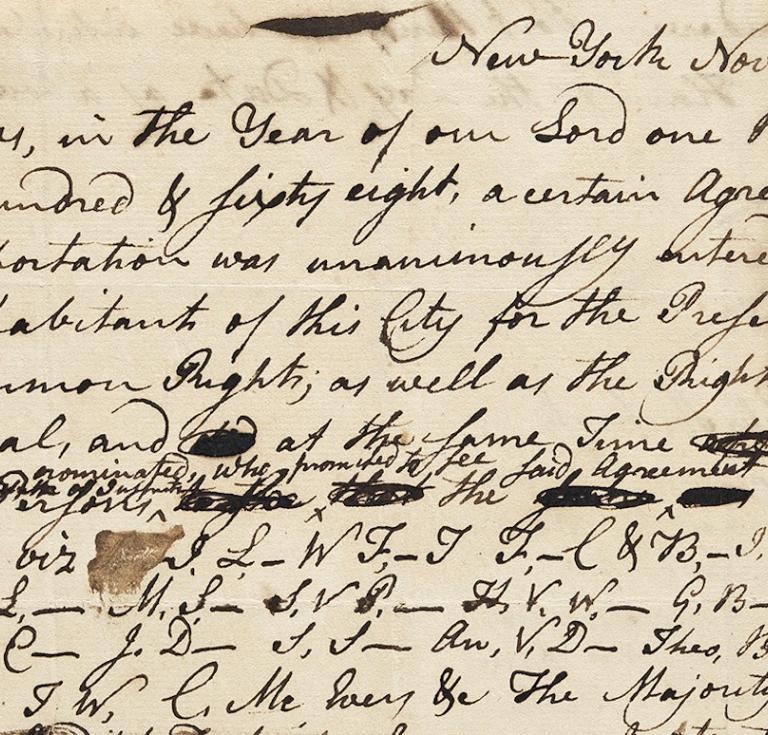 New York Nov
in the Year of our Lord one
undred & sixty eight, a certain Agre
portation was unanimously entere
habitants of this City for the Prese
mmon Rights; as well as the Right
al, and at the same Time
nominated, who promised to see said Agreement
Persons the
viz J. L.— W F,— T F,— C & B,— J.
L,— M, S— S, V P,— H, V, W,— G, B—
C— J. D— S, S— An, V, D— Theo, B
T W, C, Mc Evers &c The Majority